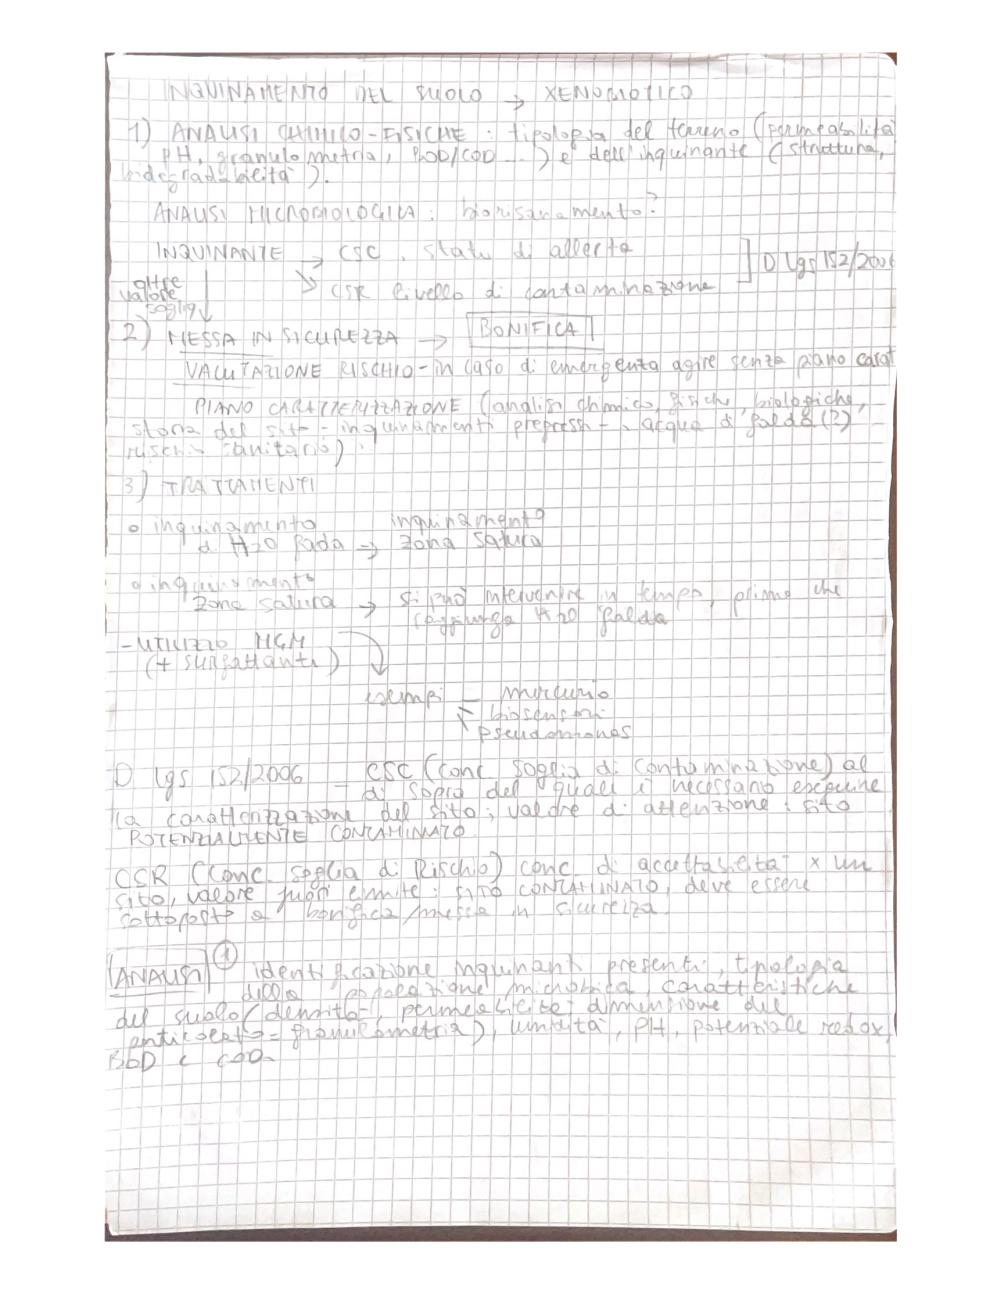 INQUINAMENTO DEL SUOLO → XENOBIOTICO
1) ANALISI CHIMICO-FISICHE : tipologia del terreno (permeabilità
PH, granulometria, BOD/COD ...) e dell'inquinante (struttura,
biodegradabilità).
ANALISI MICROBIOLOGICA : biorisanamento?
INQUINANTE → CSC, stato di allerta
] D Lgs 152/2006
↘ CSR livello di contaminazione
oltre
valore
soglia ↓
2) MESSA IN SICUREZZA → BONIFICA
VALUTAZIONE RISCHIO - in caso di emergenza agire senza piano carat
PIANO CARATTERIZZAZIONE (analisi chimico, fisiche, biologiche,
storia del sito - inquinamenti pregressi - acqua di falda (?)
rischio sanitario).
3) TRATTAMENTI
o inquinamento inquinamento
di H2O falda → zona satura
o inquinamento
zona satura → si può intervenire in tempo, prima che
raggiunga H2O falda
- UTILIZZO MGM
(+ surfattanti)
esempi - mercurio
- biosensori
- pseudomonas
D Lgs 152/2006 - CSC (conc soglia di contaminazione) al
di sopra dei quali è necessario eseguire
la caratterizzazione del sito; valore di attenzione : sito
POTENZIALMENTE CONTAMINATO
CSR (conc. soglia di Rischio) conc. di accettabilità x un
sito, valore fuori limite : SITO CONTAMINATO, deve essere
sottoposto a bonifica/messa in sicurezza.
ANALISI 1 identificazione inquinanti presenti, tipologia
della popolazione microbica, caratteristiche
del suolo (densità, permeabilità, dimensione del
particolato = granulometria), umidità, PH, potenziale redox,
BOD e COD.